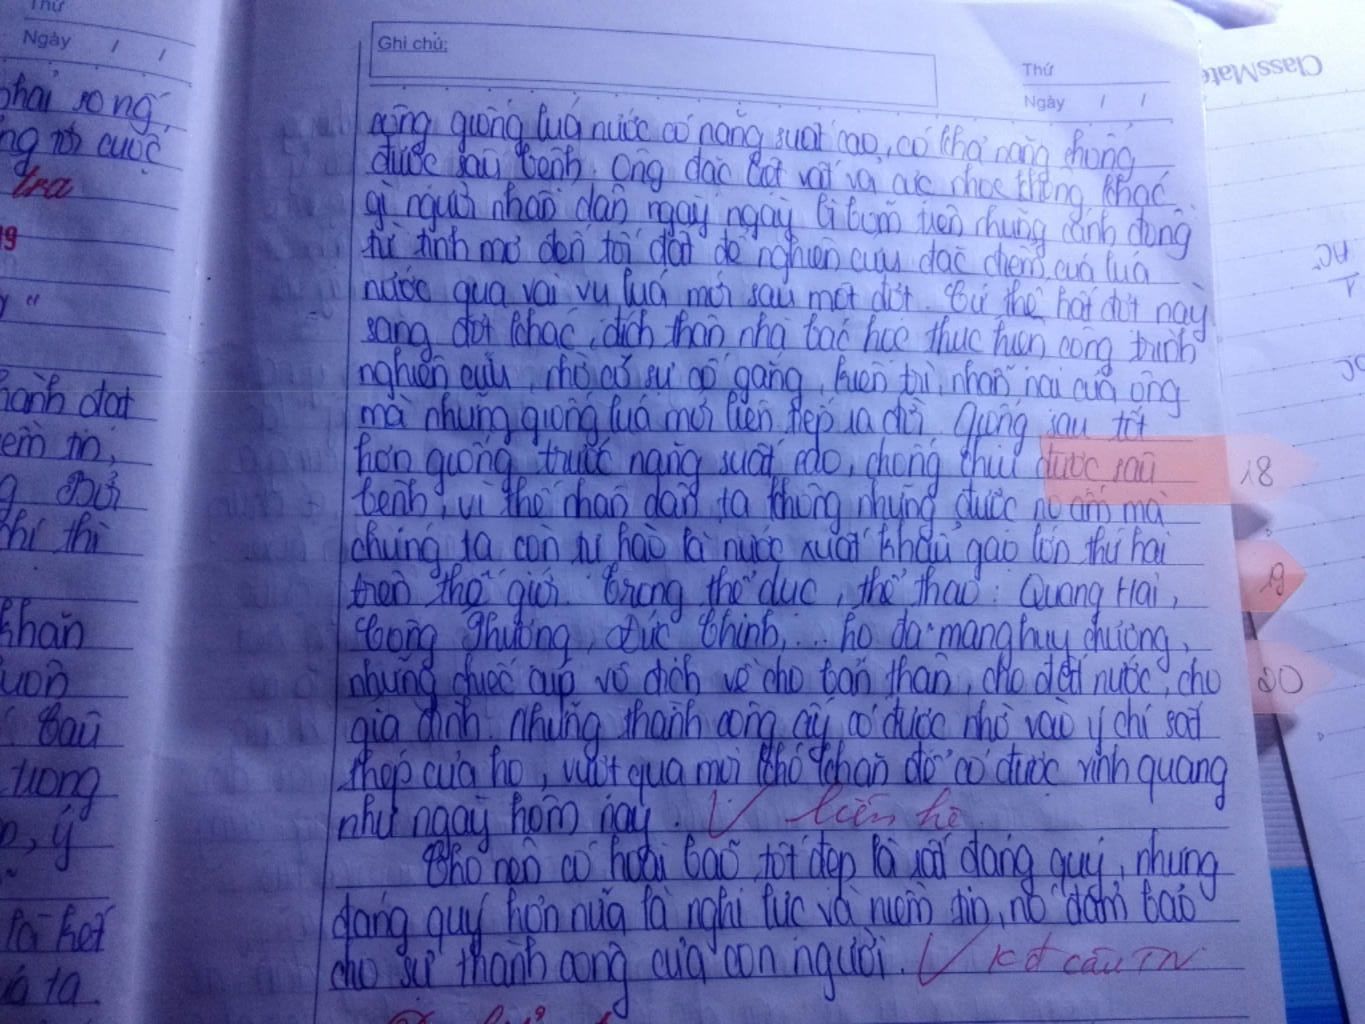 Thứ
Ngày / /
phải song
cuộc
tra
19
hành đạt
niềm tin,
khăn
trong
, ý
là kết
ta.
Ghi chú:
Thứ
Ngày / /
ClassMate
giống luá nước có năng suất cao, có khả năng chống
được sâu bệnh. Ông đặc biệt vất vả cực nhọc không khác
gì người nhân dân ngày ngày lì bùm trên những cánh đồng
từ tinh mơ đến tối đất để nghiên cứu đặc điểm của luá
nước qua vài vụ luá mới sau một đợt. Cứ thế hết đợt này
sang đợt khác, đích thân nhà bác học thực hiện công trình
nghiên cứu, nhờ có sự cố gắng, kiên trì, nhẫn nại của ông
mà những giống luá mới liên tiếp ra đời. Giống sau tốt
hơn giống trước năng suất cao, chống chịu được sâu
bệnh, vì thế nhân dân ta không những được no ấm mà
chúng ta còn tự hào là nước xuất khẩu gạo lớn thứ hai
trên thế giới. Trong thể dục, thể thao: Quang Hải,
Công Phượng, Đức Chinh,... họ đã mang huy chương,
những chiếc cúp vô địch về cho bản thân, cho đất nước, cho
gia đình. Những thành công ấy có được nhờ vào ý chí sắt
thép của họ, vượt qua mọi khó khăn để có được vinh quang
như ngày hôm nay. V liên hệ
Cho nên có hoài bão tốt đẹp là rất đáng quý, nhưng
đáng quý hơn nữa là nghị lực và niềm tin, nó đảm bảo
cho sự thành công của con người. V kđ câu TN
18
19
20